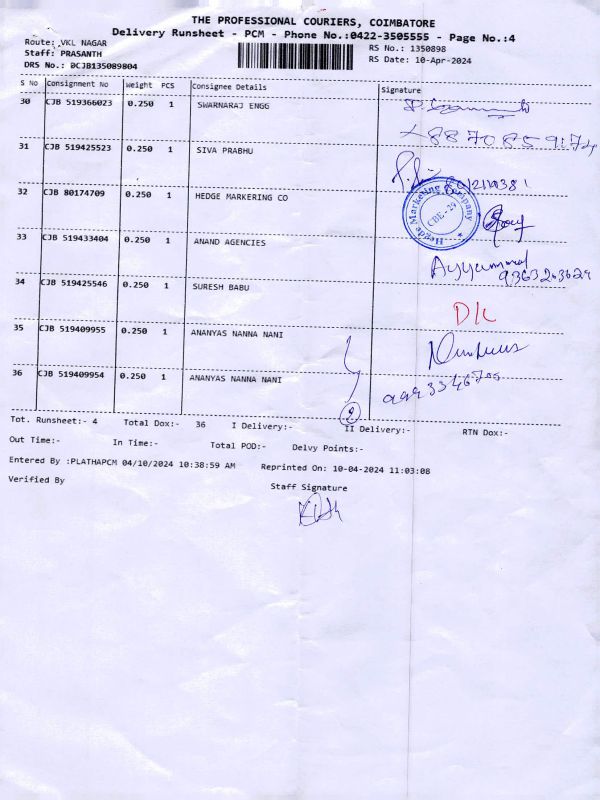 THE PROFESSIONAL COURIERS, COIMBATORE
Delivery Runsheet - PCM - Phone No.:0422-3505555 - Page No.:4
Route: VKL NAGAR
Staff: PRASANTH
DRS No.: DCJB135089804
RS No.: 1350898
RS Date: 10-Apr-2024
S No Consignment No Weight PCS Consignee Details Signature
30 CJB 519366023 0.250 1 SWARNARAJ ENGG
31 CJB 519425523 0.250 1 SIVA PRABHU
32 CJB 80174709 0.250 1 HEDGE MARKERING CO
Hegde Marketing Company
CBE-29
33 CJB 519433404 0.250 1 ANAND AGENCIES
34 CJB 519425546 0.250 1 SURESH BABU
D/L
35 CJB 519409955 0.250 1 ANANYAS NANNA NANI
36 CJB 519409954 0.250 1 ANANYAS NANNA NANI
2
Tot. Runsheet:- 4 Total Dox:- 36 I Delivery:- II Delivery:- RTN Dox:-
Out Time:- In Time:- Total POD:- Delvy Points:-
Entered By :PLATHAPCM 04/10/2024 10:38:59 AM Reprinted On: 10-04-2024 11:03:08
Verified By Staff Signature